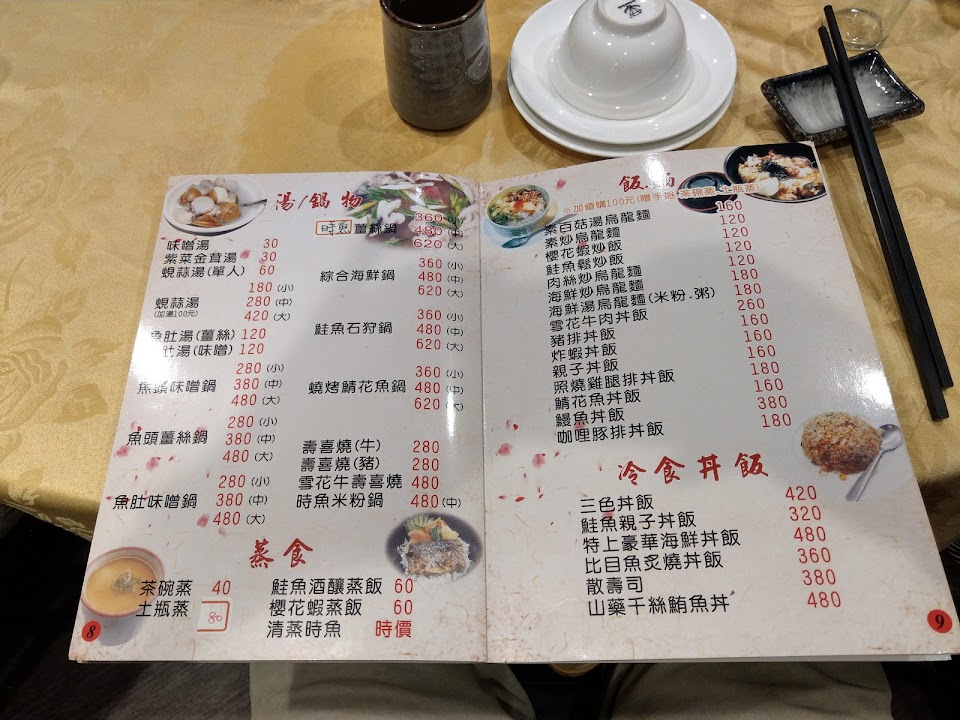 湯/鍋物
味噌湯 30
紫菜金茸湯 30
蜆蒜湯(單人) 60
180(小)
蜆蒜湯 280(中)
(加湯100元)
420(大)
魚肚湯(薑絲)120
肚湯(味噌)120
280(小)
魚頭味噌鍋 380(中)
480(大)
280(小)
魚頭薑絲鍋 380(中)
480(大)
280(小)
魚肚味噌鍋 380(中)
480(大)
360(小)
時魚 薑絲鍋 480(中)
620(大)
360(小)
綜合海鮮鍋 480(中)
620(大)
360(小)
鮭魚石狩鍋 480(中)
620(大)
360(小)
蟯烤鯖花魚鍋 480(中)
620(大)
壽喜燒(牛) 280
壽喜燒(豬) 280
雪花牛壽喜燒 480
時魚米粉鍋 480(中)
蒸食
茶碗蒸 40
土瓶蒸 80
鮭魚酒釀蒸飯 60
櫻花蝦蒸飯 60
清蒸時魚 時價
8
飯
※加價購100元(贈手捲.茶碗蒸.土瓶蒸)
素百菇湯烏龍麵 160
素炒烏龍麵 120
櫻花蝦炒飯 120
鮭魚鬆炒飯 120
肉絲炒烏龍麵 120
海鮮炒烏龍麵 180
海鮮湯烏龍麵(米粉.粥) 180
雪花牛肉丼飯 260
豬排丼飯 160
炸蝦丼飯 160
親子丼飯 160
照燒雞腿排丼飯 180
鯖花魚丼飯 160
鰻魚丼飯 380
咖哩豚排丼飯 180
冷食丼飯
三色丼飯 420
鮭魚親子丼飯 320
特上豪華海鮮丼飯 480
比目魚炙燒丼飯 360
散壽司 380
山藥千絲鮪魚丼 480
9